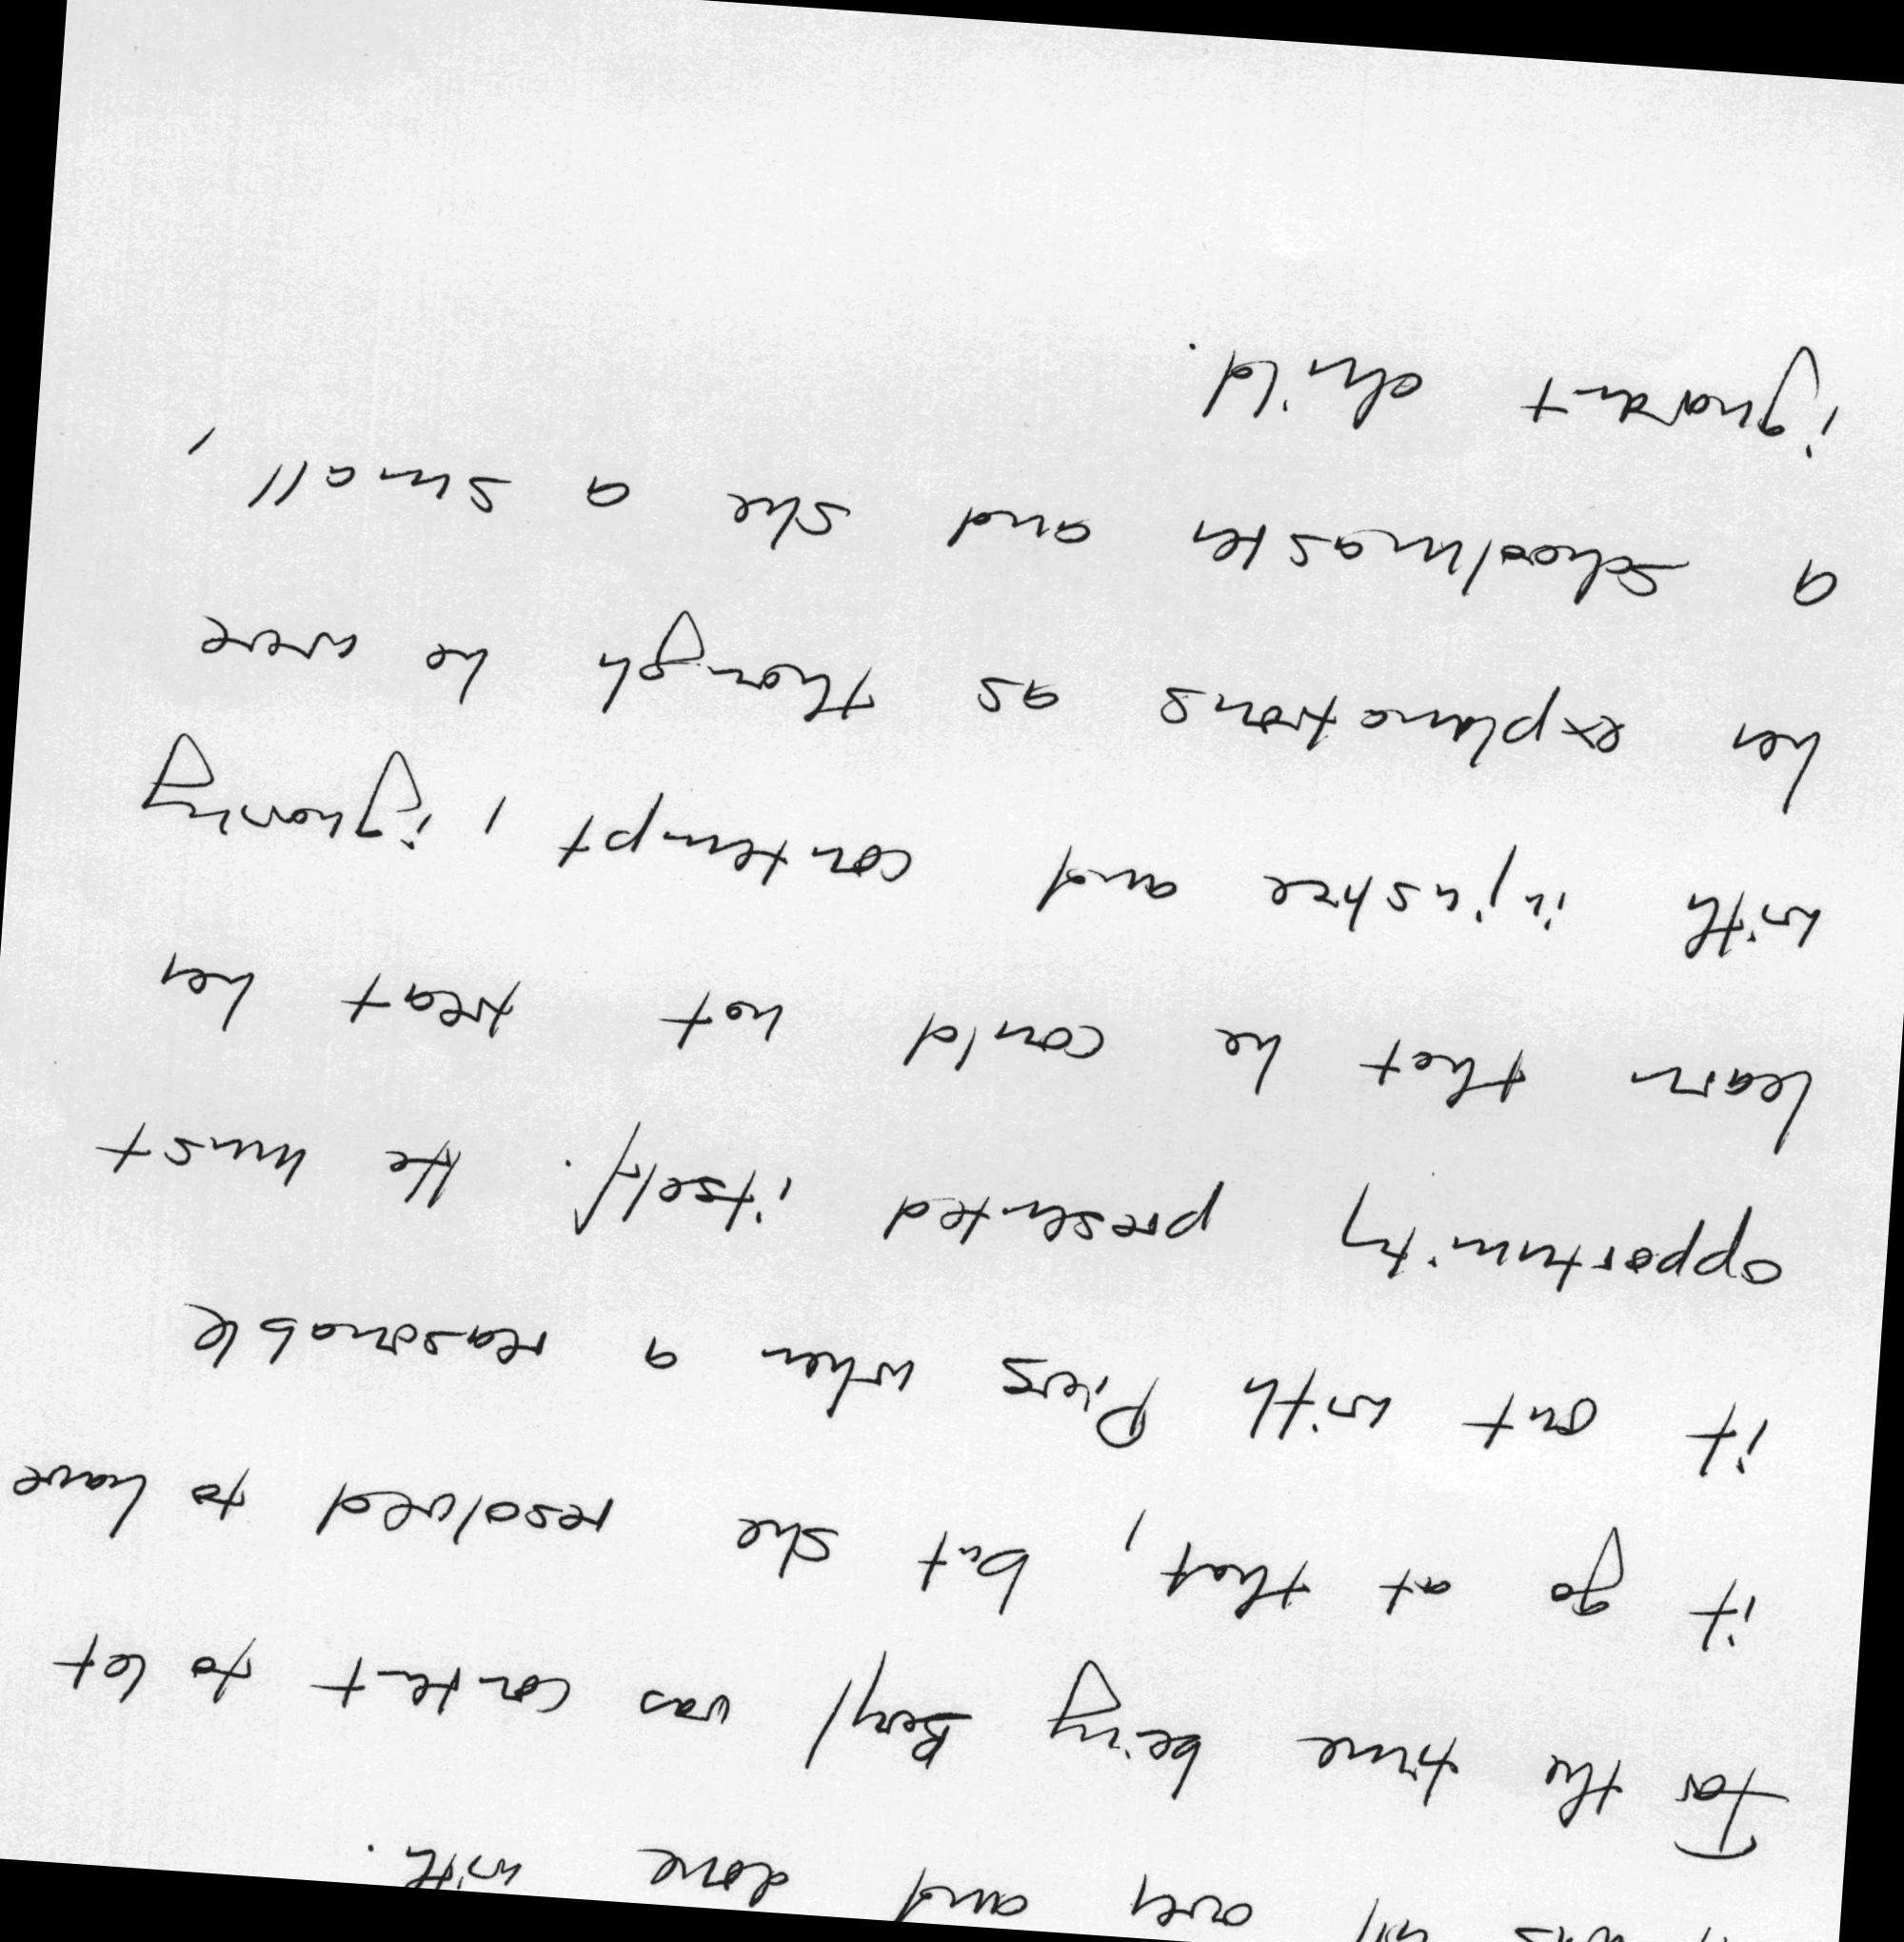 was all over and done with.
For the time being Beryl was content to let
it go at that, but she resolved to have
it out with Piers when a reasonable
opportunity presented itself. He must
learn that he could not treat her
with injustice and contempt, ignoring
her explanations as though he were
a schoolmaster and she a small,
ignorant child.